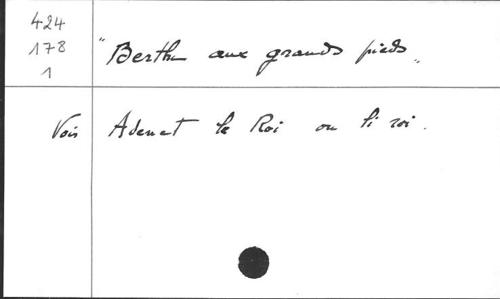 424
178
1
"Berthe aux grands pieds"
Voir Adenet le Roi ou li roi.